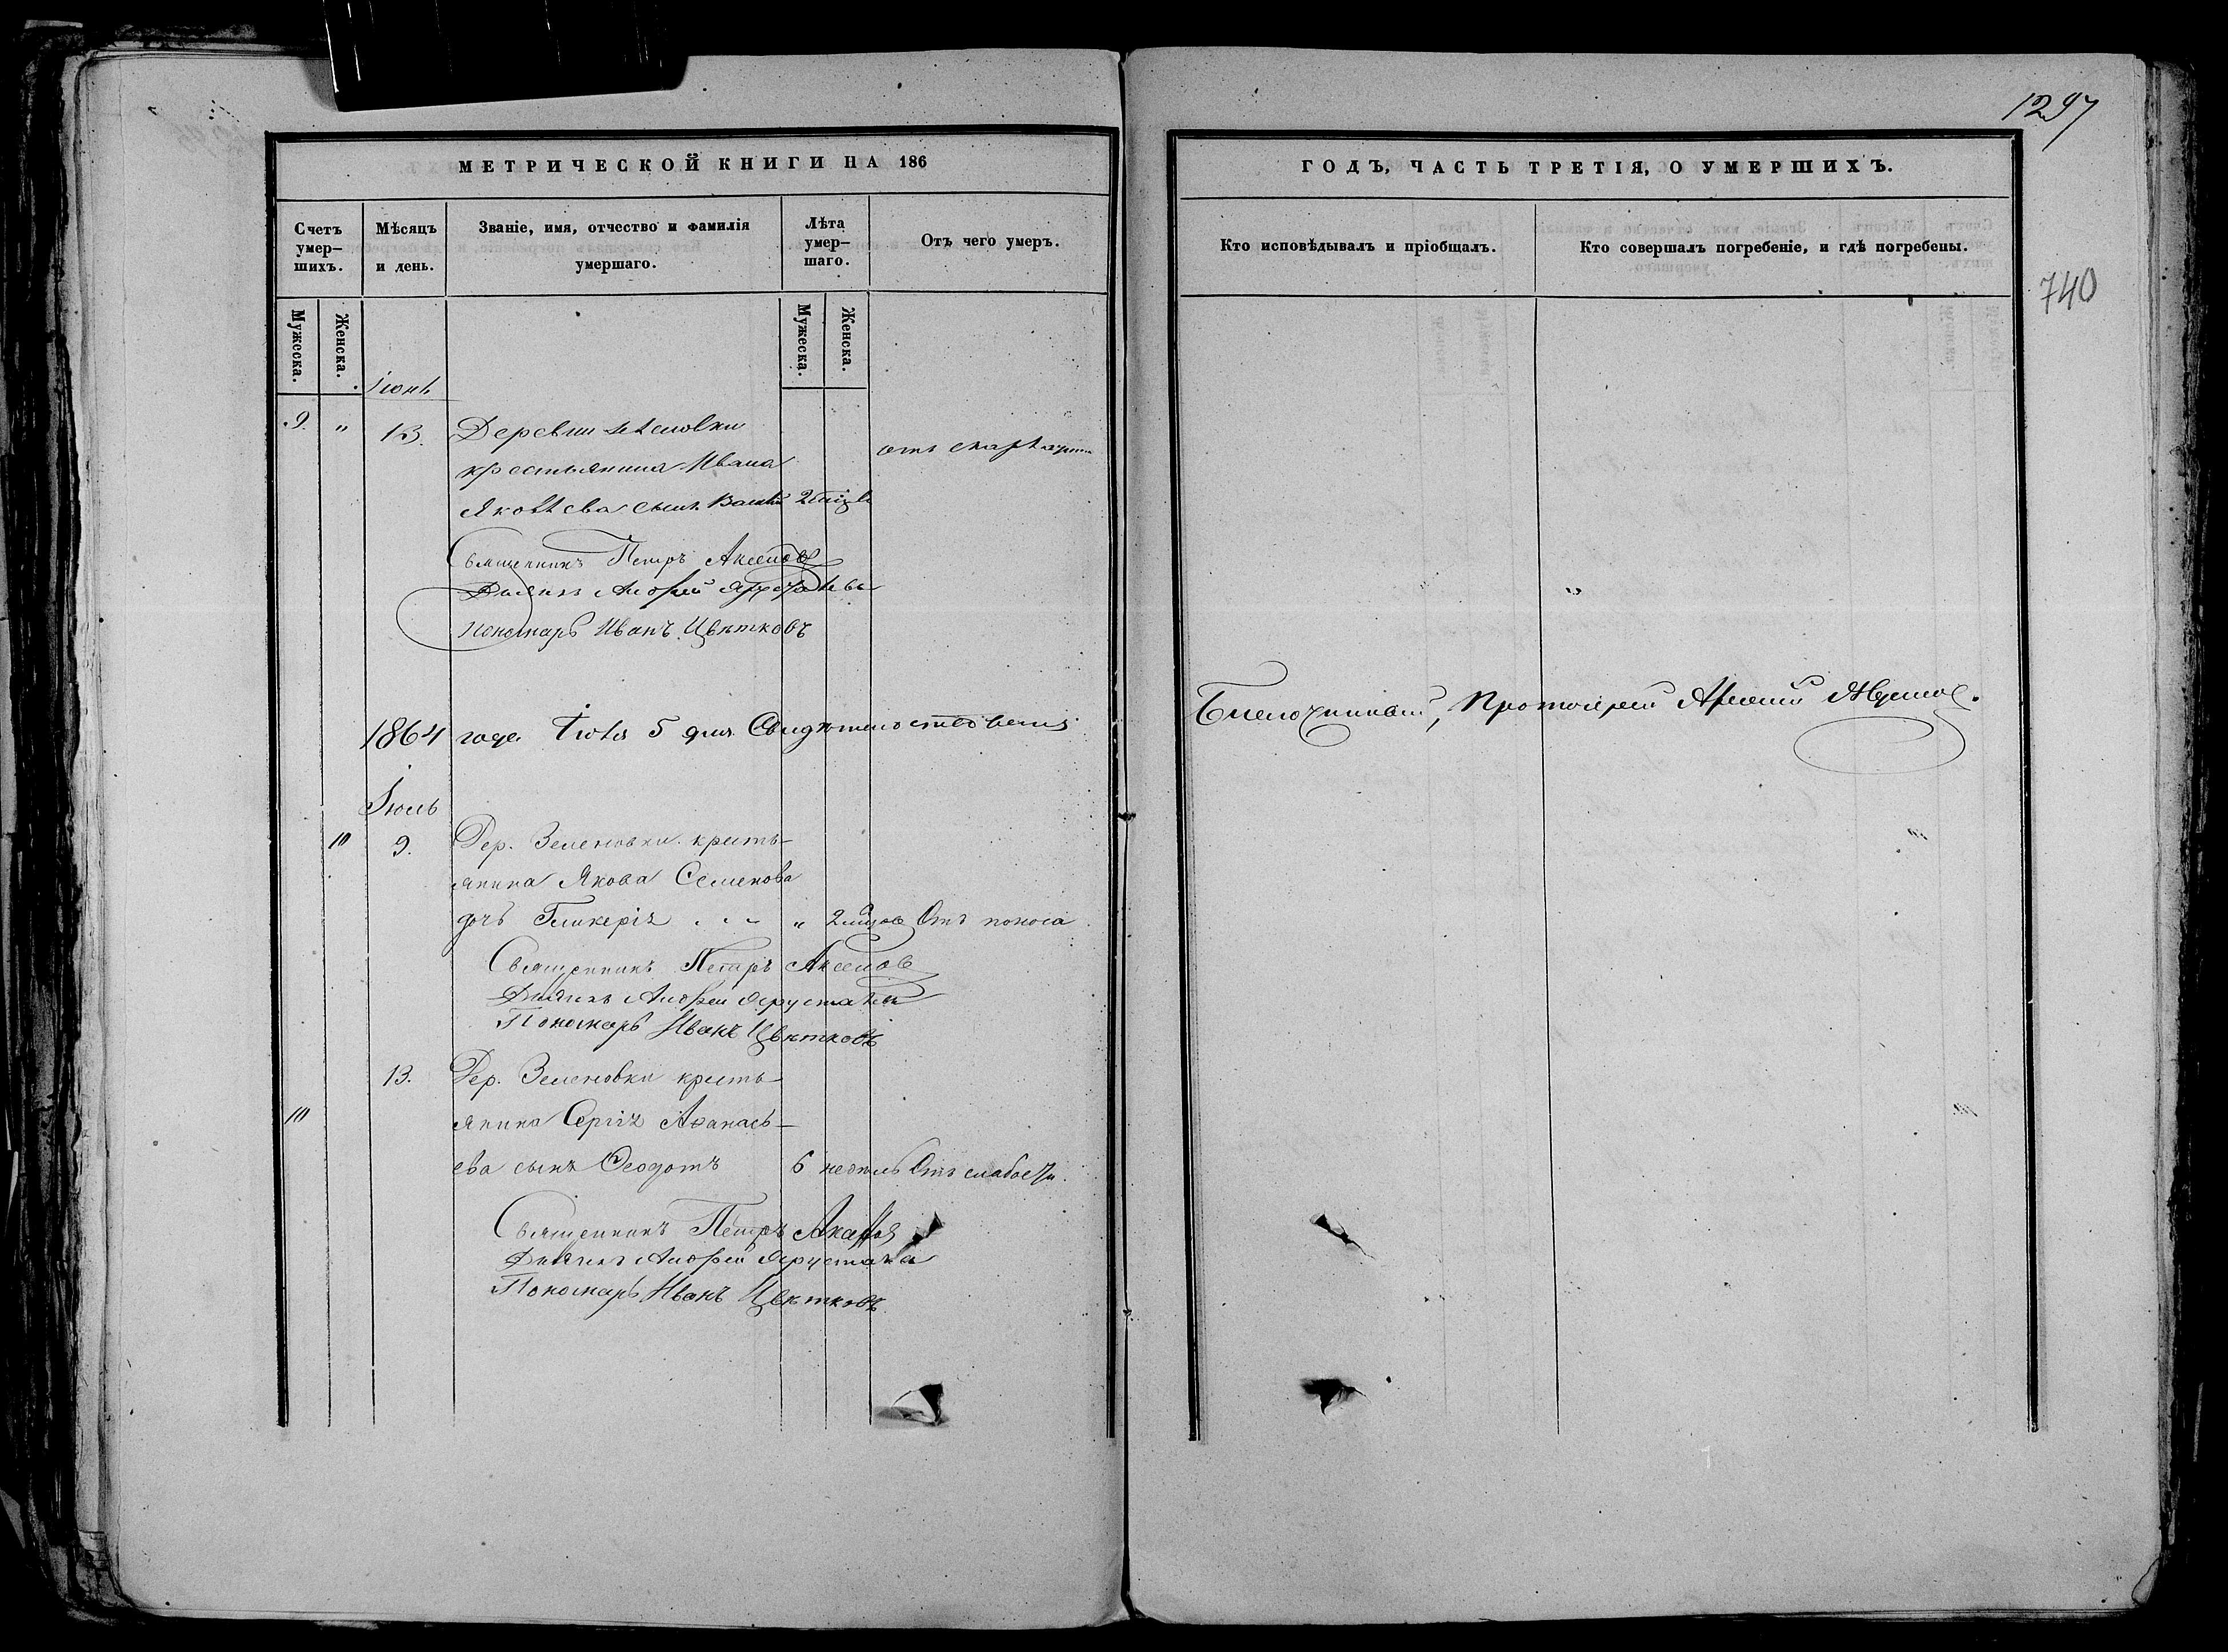 1297
740
МЕТРИЧЕСКОЙ КНИГИ НА 186
Счетъ умер-шихъ.
Мѣсяцъ и день.
Званіе, имя, отчество и фамилія умершаго.
Лѣта умер-шаго.
Отъ чего умеръ.
Мужеска.
Женска.
Мужеска.
Женска.
Іюнь
9. " 13. Деревни
крестьянина Ивана
Яковлева сынъ
Священникъ Петръ Аксенов
Дьячекъ Андрей
Пономарь Иванъ Цвѣтковъ
1864 года Іюля 5 дня Свидѣтельствовалъ
Іюль
10 9. Дер. Зеленовки кресть-
янина Якова Семенова
дочь Гликерія " 2 Отъ поноса
Священникъ Петръ Аксенов
Дьячекъ Андрей
Пономарь Иванъ Цвѣтковъ
13. Дер. Зеленовки кресть-
10 янина Сергія Аѳанась-
ева сынъ Ѳеодотъ 6 недѣль Отъ слабости.
Священникъ Петръ
Дьячекъ Андрей
Пономарь Иванъ Цвѣтковъ
ГОДЪ, ЧАСТЬ ТРЕТІЯ, О УМЕРШИХЪ.
Кто исповѣдывалъ и пріобщалъ.
Кто совершалъ погребеніе, и гдѣ погребены.
Благочинный, Протоіерей